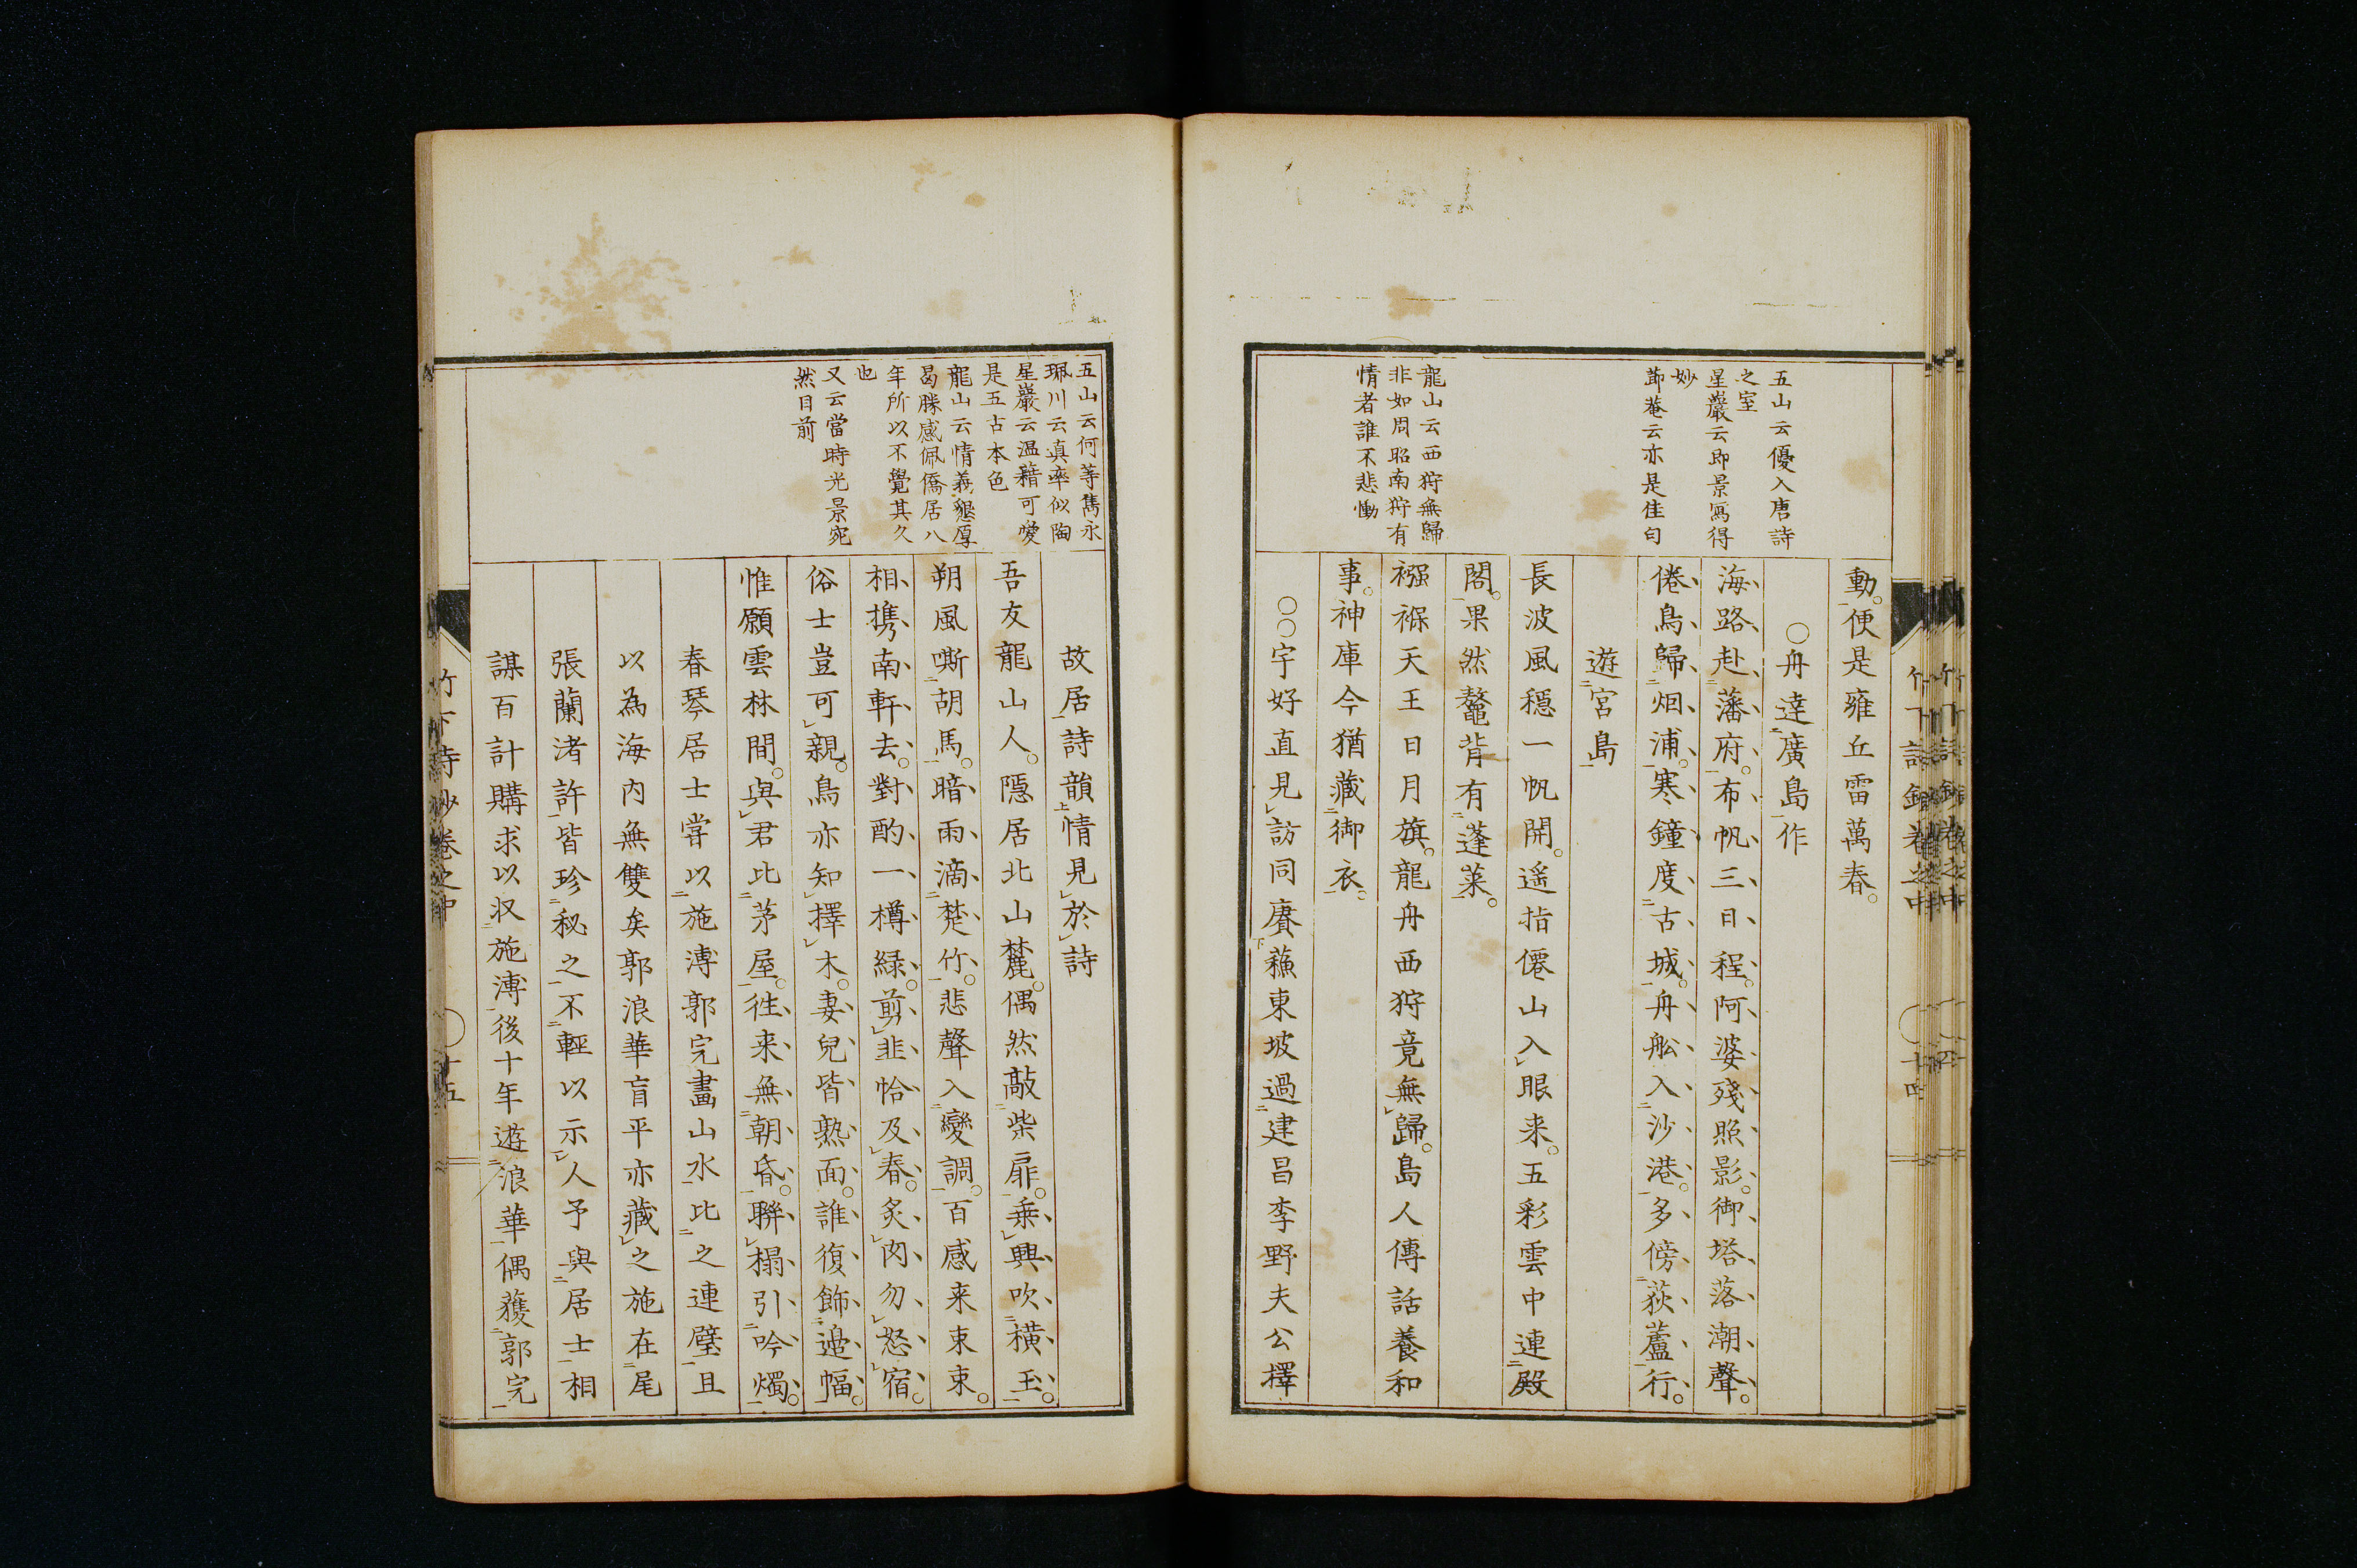 五山云優入唐詩
之室
星巖云即景寫得
妙
節菴云亦是佳句
龍山云西狩無歸
非如周昭南狩有
情者誰不悲慟
動便是雍丘雷萬春。
○舟達廣島作
海路赴藩府。布帆三日程。阿婆殘照影。御塔落潮聲。
倦鳥歸烟浦。寒鐘度古城。舟舩入沙港。多傍荻蘆行。
遊宮島
長波風穩一帆開。遥指僊山入眼来。五彩雲中連殿
閣。果然鼇背有蓬萊。
襁褓天王日月旗。龍舟西狩竟無歸。島人傳話養和
事。神庫今猶藏御衣。
○○宇好直見訪同賡蘓東坡過建昌李野夫公擇
竹下詩鈔卷之中
十四
五山云何等雋永
珮川云真率似陶
星巖云温藉可愛
是五古本色
龍山云情義懇厚
曷勝感佩僑居八
年所以不覺其久
也
又云當時光景宛
然目前
故居詩韻情見於詩
吾友龍山人。隱居北山麓。偶然敲柴扉。乗興吹横玉。
朔風嘶胡馬。暗雨滴楚竹。悲聲入變調。百感来束束。
相携南軒去。對酌一樽緑。剪韭恰及春。炙肉勿怒宿。
俗士豈可親。鳥亦知擇木。妻兒皆熟面。誰復飾邉幅。
惟願雲林間。與君比茅屋。往来無朝昏。聯榻引吟燭。
春琴居士甞以施溥郭完畫山水比之連璧且
以為海内無雙矣郭浪華盲平亦藏之施在尾
張蘭渚許皆珍秘之不輕以示人予與居士相
謀百計購求以収施溥後十年遊浪華偶獲郭完
竹下詩鈔卷之中
十五